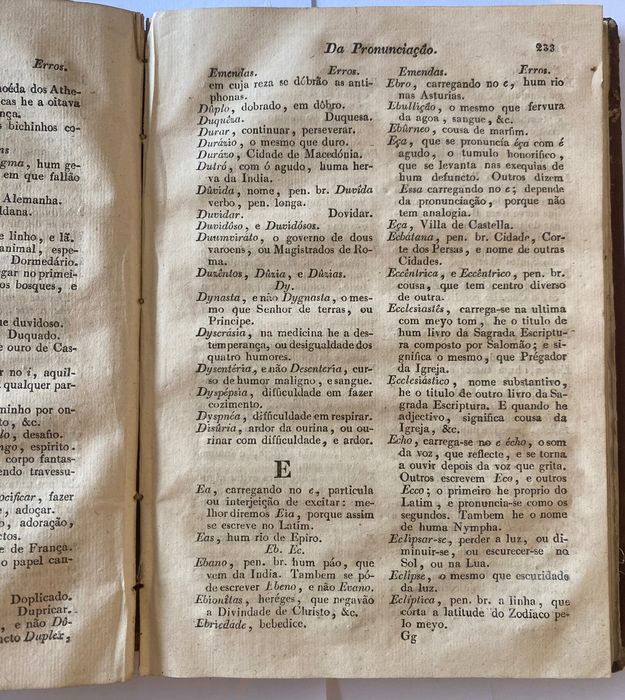 Erros.
moéda dos Athe-
cas he a oitava
nça.
s bichinhos co-
ns
gma, hum ge-
em que fallão
Alemanha.
ldana.
e linho, e lã.
animal, espe-
Dormedário.
gar no primei-
os bosques, e
ue duvidoso.
Duquado.
e ouro de Cas-
r no i, aquil-
qualquer par-
minho por on-
to, &c.
lo, desafio.
ngo, espirito.
corpo fantas-
endo travessu-
ocificar, fazer
e, adoçar.
o, adoração,
ctos.
e de França.
o papel can-
Doplicado.
Dupricar.
, e não Dô-
ncto Duplex,
Da Pronunciação. 233
Emendas. Erros.
em cuja reza se dóbrão as anti-
phonas.
Dûplo, dobrado, em dôbro.
Duquêza. Duquesa.
Durar, continuar, perseverar.
Durázio, o mesmo que duro.
Durázo, Cidade de Macedónia.
Dutró, com ó agudo, huma her-
va da India.
Dûvida, nome, pen. br. Duvída
verbo, pen. longa.
Duvidar. Dovidar.
Duvidôso, e Duvidósos.
Duumviráto, o governo de dous
varoens, ou Magistrados de Ro-
ma.
Duzêntos, Dûzia, e Dûzias.
Dy.
Dynasta, e não Dygnasta, o mes-
mo que Senhor de terras, ou
Principe.
Dyscrásia, na medicina he a des-
temperança, ou desigualdade dos
quatro humores.
Dysentéria, e não Desenteria, cur-
so de humor maligno, e sangue.
Dyspépsia, difficuldade em fazer
cozimento.
Dyspnéa, difficuldade em respirar.
Disûria, ardor da ourina, ou ou-
rinar com difficuldade, e ardor.
E
Ea, carregando no e, particula
ou interjeição de excitar: me-
lhor diremos Eia, porque assim
se escreve no Latim.
Eas, hum rio de Epiro.
Eb. Ec.
Ebano, pen. br. hum páo, que
vem da India. Tambem se pó-
de escrever Ebeno, e não Evano.
Ebionítas, heréges, que negavão
a Divindade de Christo, &c.
Ebriedade, bebedice.
Emendas. Erros.
Ebro, carregando no e, hum rio
nas Asturias.
Ebullição, o mesmo que fervura
da agoa, sangue, &c.
Ebûrneo, cousa de marfim.
Eça, que se pronuncía éça com é
agudo, o tumulo honorifico,
que se levanta nas exequias de
hum defuncto. Outros dizem
Essa carregando no e; depende
da pronunciação, porque não
tem analogia.
Eça, Villa de Castella.
Ecbátana, pen. br. Cidade, Cor-
te dos Persas, e nome de outras
Cidades.
Eccêntrica, e Eccêntrico, pen. br.
cousa, que tem centro diverso
de outra.
Ecclesiastês, carrega-se na ultima
com meyo tom, he o titulo de
hum livro da Sagrada Escriptu-
ra composto por Salomão; e si-
gnifica o mesmo, que Prégador
da Igreja.
Ecclesiástico, nome substantivo,
he o titulo de outro livro da Sa-
grada Escriptura. E quando he
adjectivo, significa cousa da
Igreja, &c.
Echo, carrega-se no e écho, o som
da voz, que reflecte, e se torna
a ouvir depois da voz que grita.
Outros escrevem Eco, e outros
Ecco; o primeiro he proprio do
Latim, e pronuncia-se como os
segundos. Tambem he o nome
de huma Nympha.
Eclipsar-se, perder a luz, ou di-
minuir-se, ou escurecer-se no
Sol, ou na Lua.
Eclipse, o mesmo que escuridade
da luz.
Eclíptica, pen. br. a linha, que
córta a latitude do Zodíaco pe-
lo meyo.
Gg